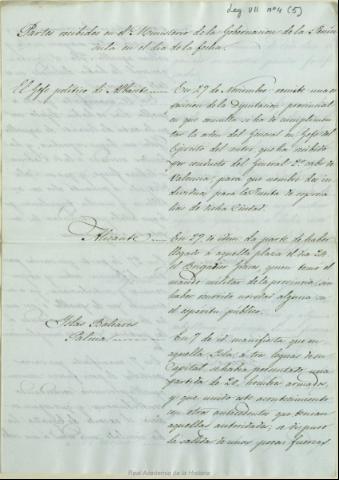 Leg VII nº 4 (5)
Partes recibidos en el Ministerio de la Gobernacion de la Penin
sula en el dia de la fecha.
El Gefe politico de Albacete En 27 de Noviembre remite una es
posicion de la Diputacion provincial
en que consulta si ha de cumplimen
tar la orden del General en Gefe del
Ejército del centro, que ha recibido
por conducto del General 2º cabo de
Valencia, para que nombre dos in
dividuos para la Junta de represa
lias de dicha Ciudad.
Alicante En 29 de idem da parte de haber
llegado a aquella plaza el dia 24
el Brigadier quien tomó el
mando militar de la provincia, sin
haber ocurrido novedad alguna en
el espiritu publico.
Islas Baleares
Palma En 7 de id. manifiesta que en
aquella Isla, a tres leguas de su
Capital, se habia presentado una
partida de 20 hombres armados,
y que unido este acontecimiento
con otros antecedentes que tenian
aquellas autoridades, se dispuso
la salida de unas pocas fuerzas
Real Academia de la Historia